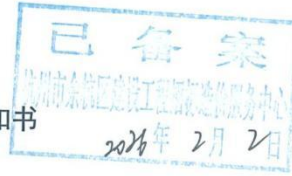 已备案
杭州市余杭区建设工程招标造价服务中心
知书
2026年2月2日